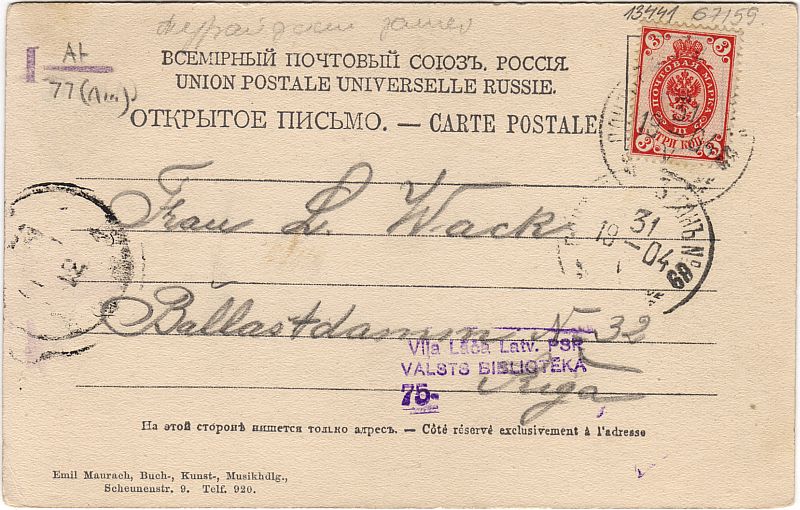 13441 67/159.
АН
77(Лат)
ВСЕМІРНЫЙ ПОЧТОВЫЙ СОЮЗЪ. РОССІЯ.
UNION POSTALE UNIVERSELLE RUSSIE.
ОТКРЫТОЕ ПИСЬМО. — CARTE POSTALE
3 3
ПОЧТОВАЯ МАРКА
ТРИ КОП.
3 3
Frau L. Wack
31
19 — 04
№ 68
Ballastdamm N 32
Riga
Viļa Lāča Latv. PSR
VALSTS BIBLIOTĒKA
75-
На этой сторонѣ пишется только адресъ. — Côté réservé exclusivement à l'adresse
Emil Maurach, Buch-, Kunst-, Musikhdlg.,
Scheunenstr. 9. Telf. 920.